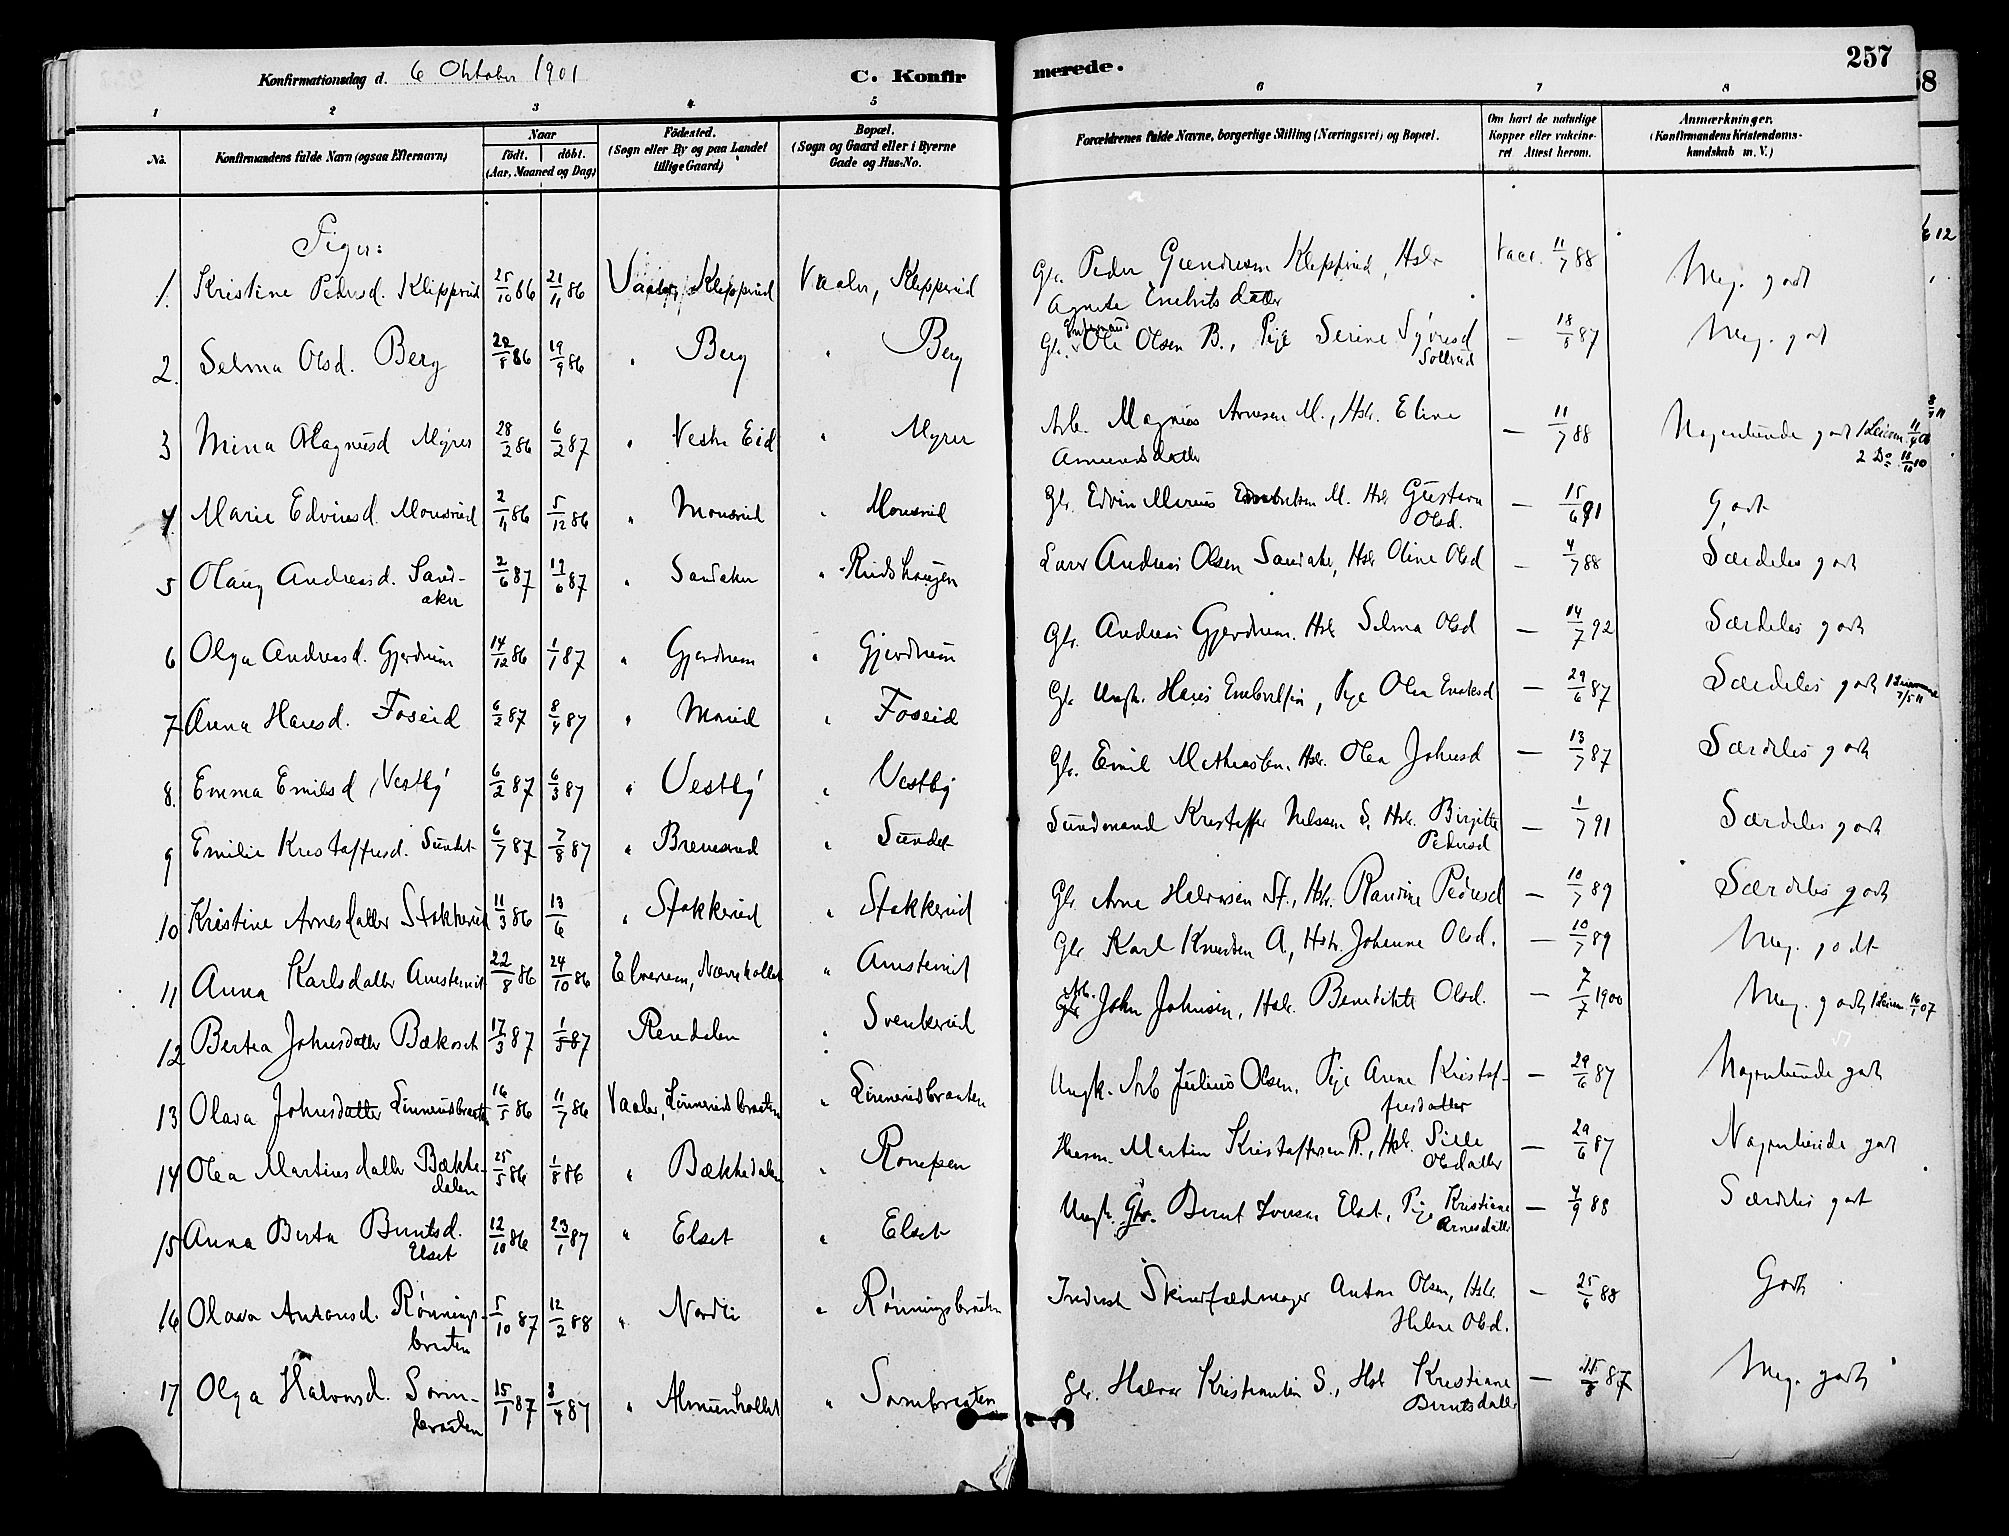 Konfirmationsdag d. 6 Oktober 1901
C. Konfirmerede.
257
1 2 3 4 5 6 7 8
No. Konfirmandens fulde Navn (ogsaa Efternavn) Naar födt. döbt. (Aar, Maaned og Dag) Födested. (Sogn eller By og paa Landet tillige Gaard) Bopæl. (Sogn og Gaard eller i Byerne Gade og Hus-No. Forældrenes fulde Navne, borgerlige Stilling (Næringsvei) og Bopæl. Om havt de naturlige Kopper eller vakcineret. Attest herom. Anmærkninger. (Konfirmandens Kristendomskundskab m. V.)
Piger:
1. Kristine Pedersd. Klepperud 25/10 86 21/11 86 Vaaler, Klepperud Vaaler, Klepperud Gbr. Peder Gundersen Klepperud, Hstr Vacc. 11/7 88 Meg. godt
Agnete Embretsdatter
2. Selma Olsd. Berg 22/8 86 19/9 86 " Berg " Berg Gbr. Enkemand Ole Olsen B., Pige Serine Syversd Sollerud — 18/8 87 Meg. godt
3 Mina Magnusd Myrer 28/2 86 6/2 87 " Vestre Eid " Myrer Arb. Magnus Arnesen M., Hstr. Eline — 11/7 88 Nogenlunde godt
Amundsdatter
4. Marie Edvinsd. Monsrud 2/11 86 5/12 86 " Monsrud " Monsrud Gbr. Edvin Marius Embretsen M. Hstr Gustava Olsd. — 15/6 91 Godt
5 Olaug Andreasd. Sandaker 2/6 87 17/6 87 " Sandaker " Rudshaugen Andreas Olsen Sandaker, Hstr Oline Olsd — 4/7 88 Særdeles godt
6 Olga Andreasd. Gjerdrum 14/12 86 1/1 87 " Gjerdrum " Gjerdrum Gbr. Andreas Gjerdrum. Hstr Selma Olsd — 14/7 92 Særdeles godt
7 Anna Hansd. Foseid 6/2 87 8/4 87 " Moseid " Foseid Gbr Ungk. Hans Embretsen, Pige Olea Enoksd — 29/6 87 Særdeles godt
8. Emma Emilsd Vestby 6/2 87 6/3 87 " Vestby " Vestby Gbr. Emil Mathiassen, Hstr. Olea Johnsd — 13/7 87 Særdeles godt
9 Emilie Kristoffersd. Sundet 6/7 87 7/8 87 " Brenesrud " Sundet Sundmand Kristoffer Nelssen S. Hstr. Birgitte Pedersd — 1/7 91 Særdeles godt
10 Kristine Arnesdatter Stokkerud 11/3 86 13/6 " Stokkerud " Stokkerud Gbr Arne Halvorsen St., Hstr. Randine Pedersd — 10/7 89 Særdeles godt
11 Anna Karlsdatter Arnsterud 22/8 86 24/10 86 Elverum, " Arnsterud Gbr Karl Knudsen A., Hstr. Johanne Olsd. — 10/7 89 Meg. godt
12 Bertea Johnsdatter Bækoset 17/3 87 1/5 87 Rendalen " Svenkerud Arb. John Johnsen, Hstr. Benedikte Olsd. — 7/7 1900 Meg. godt
13 Olava Johnsdatter Linnerudbraaten 16/5 86 11/7 86 Vaaler, Linnerudbraaten " Linnerudbraaten Ungk. Arb Julius Olsen. Pige Anne Kristoffersdatter — 29/6 87 Nogenlunde godt
14 Olea Martinsdatter Bækkedalen 25/5 86 1/8 86 " Bækkedalen " Husm. Martin Kristoffersen R., Hstr. Sille Olsdatter — 29/6 87 Nogenlunde godt
15 Anna Berta Berntsd. Elset 12/10 86 23/1 87 " Elset " Elset Ungk. Gbr. Bernt Iversen Elset, Pige Kristiane Arnesdatter — 4/9 88 Særdeles godt
16 Olava Antonsd. Rønningsbraaten 5/10 87 12/2 88 " Nordli " Rønningsbraaten Inderst Skindfældmager Anton Olsen, Hstr. Helene Olsd. — 25/6 88 Godt
17 Olga Halvorsd. Sormbraaten 15/1 87 3/4 87 " Almenhollet " Sormbraaten Gbr. Halvor Kristiansen S., Hstr Kristiane Berntsdatter — 15/8 87 Meg. godt